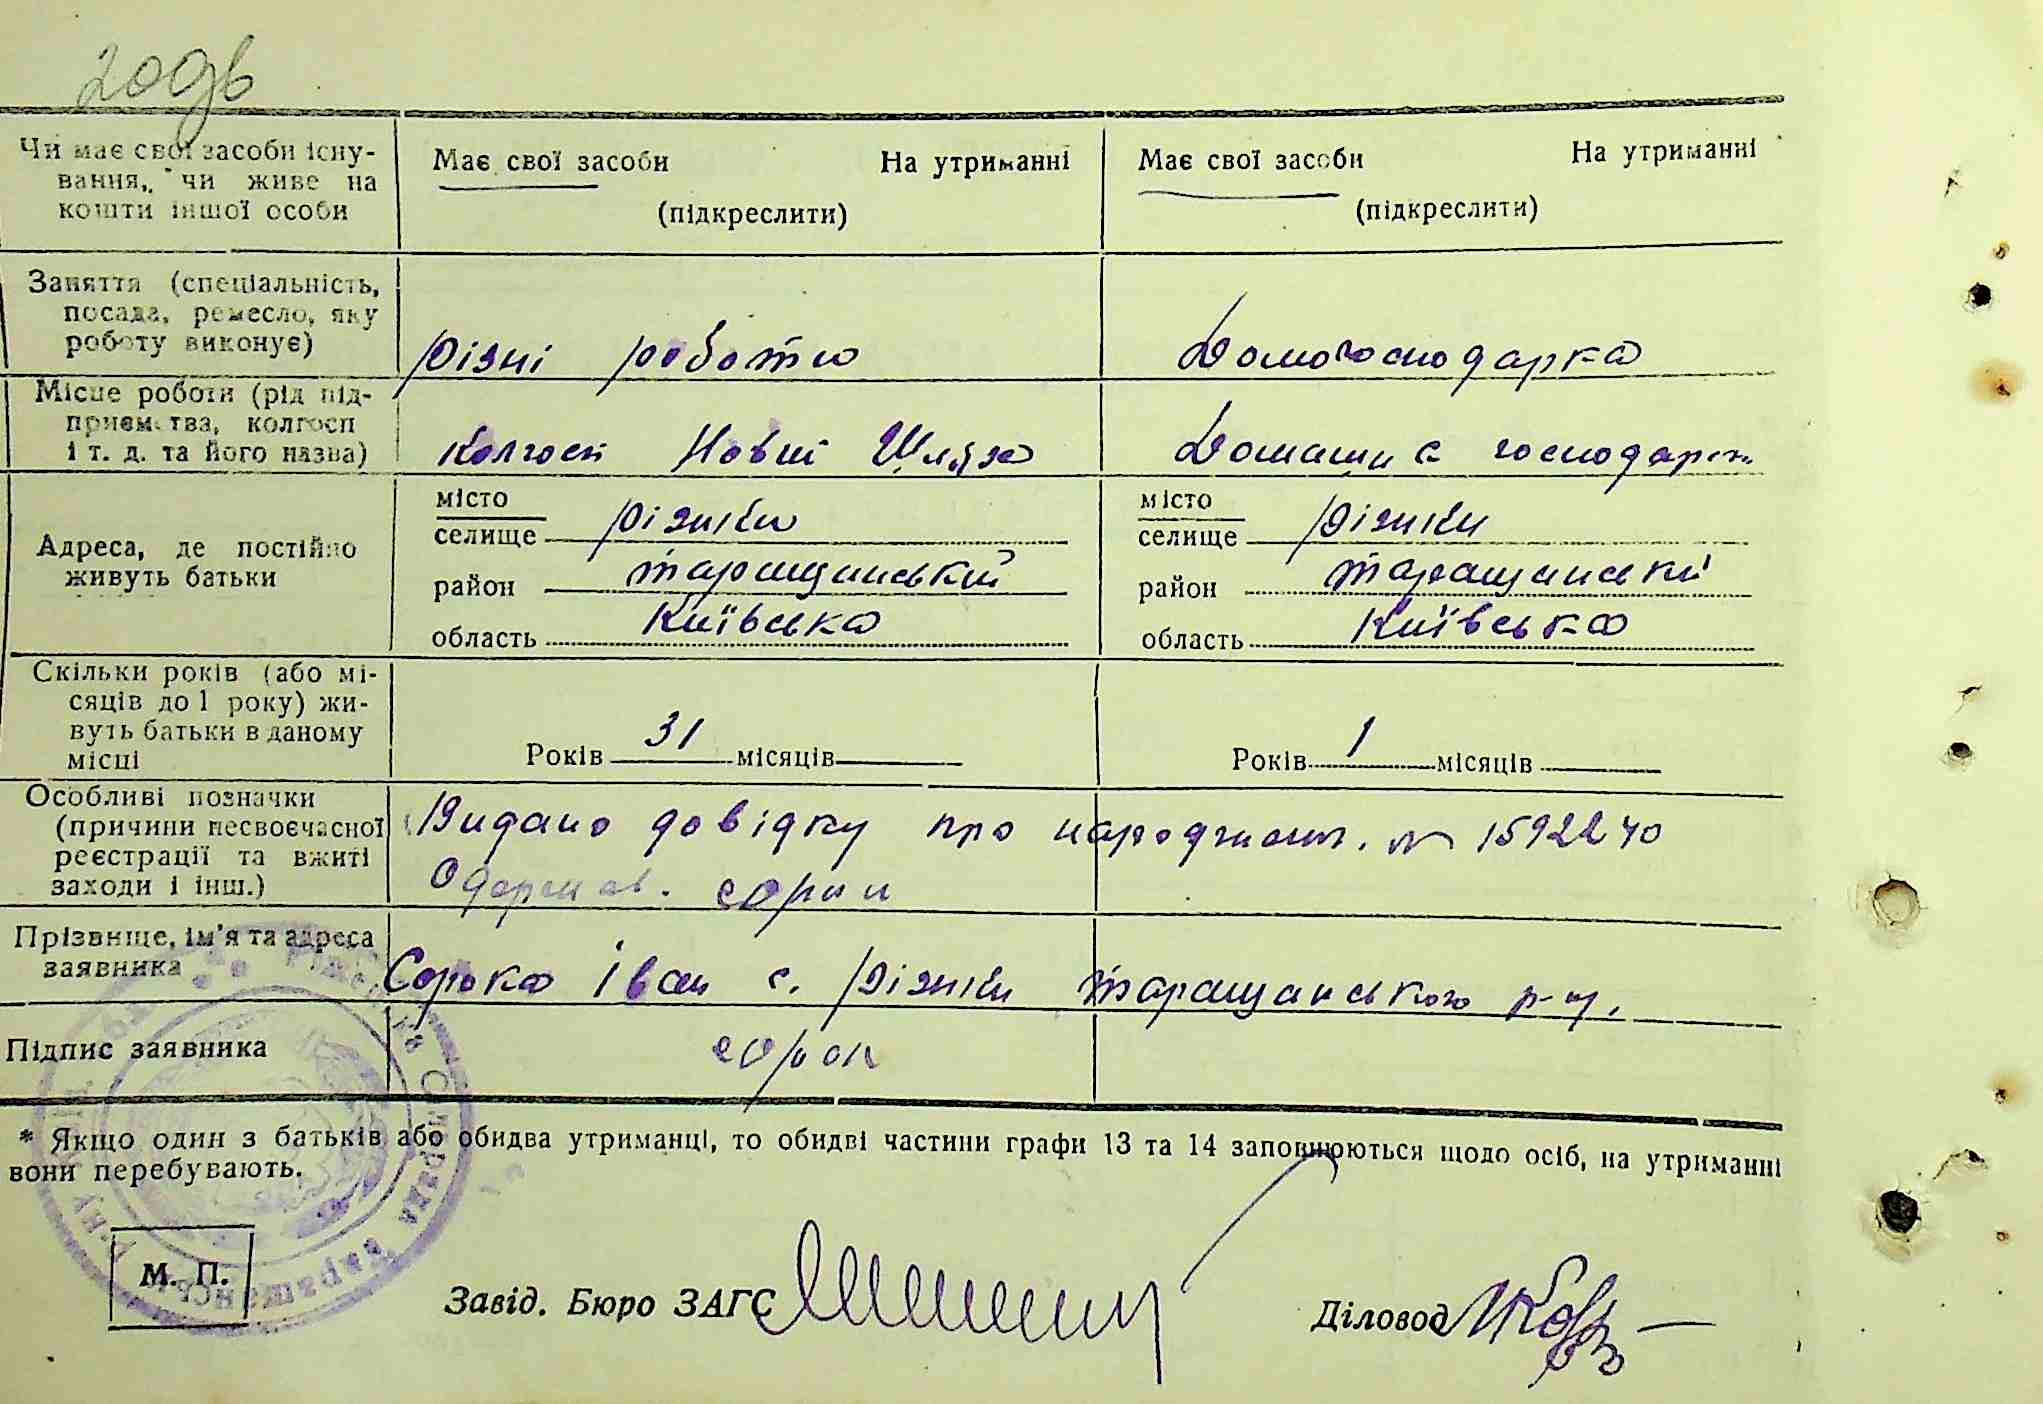 20дв
Чи має свої засоби існу-
вання, чи живе на
кошти іншої особи
Має свої засоби На утриманні
(підкреслити)
Має свої засоби На утриманні
(підкреслити)
Заняття (спеціальність,
посада, ремесло, яку
роботу виконує)
різні роботи
Домогосподарка
Місце роботи (рід під-
приємства, колгосп
і т. д. та його назва)
Колгосп Новий Шлях
Домашнє
Адреса, де постійно
живуть батьки
місто
селище Ріжки
район таращанський
область Київська
місто
селище Ріжки
район таращанський
область Київська
Скільки років (або мі-
сяців до 1 року) жи-
вуть батьки в даному
місці
Років 31 місяців
Років 1 місяців
Особливі позначки
(причини несвоєчасної
реєстрації та вжиті
заходи і інш.)
Видано довідку про народжен. № 1592240
Одержав.
Прізвище, ім'я та адреса
заявника
Сорока Іван с. Ріжки таращанського р-ну.
Підпис заявника
сорок
* Якщо один з батьків або обидва утриманці, то обидві частини графи 13 та 14 заповнюються щодо осіб, на утриманні
вони перебувають.
М. П.
Завід. Бюро ЗАГС
Діловод